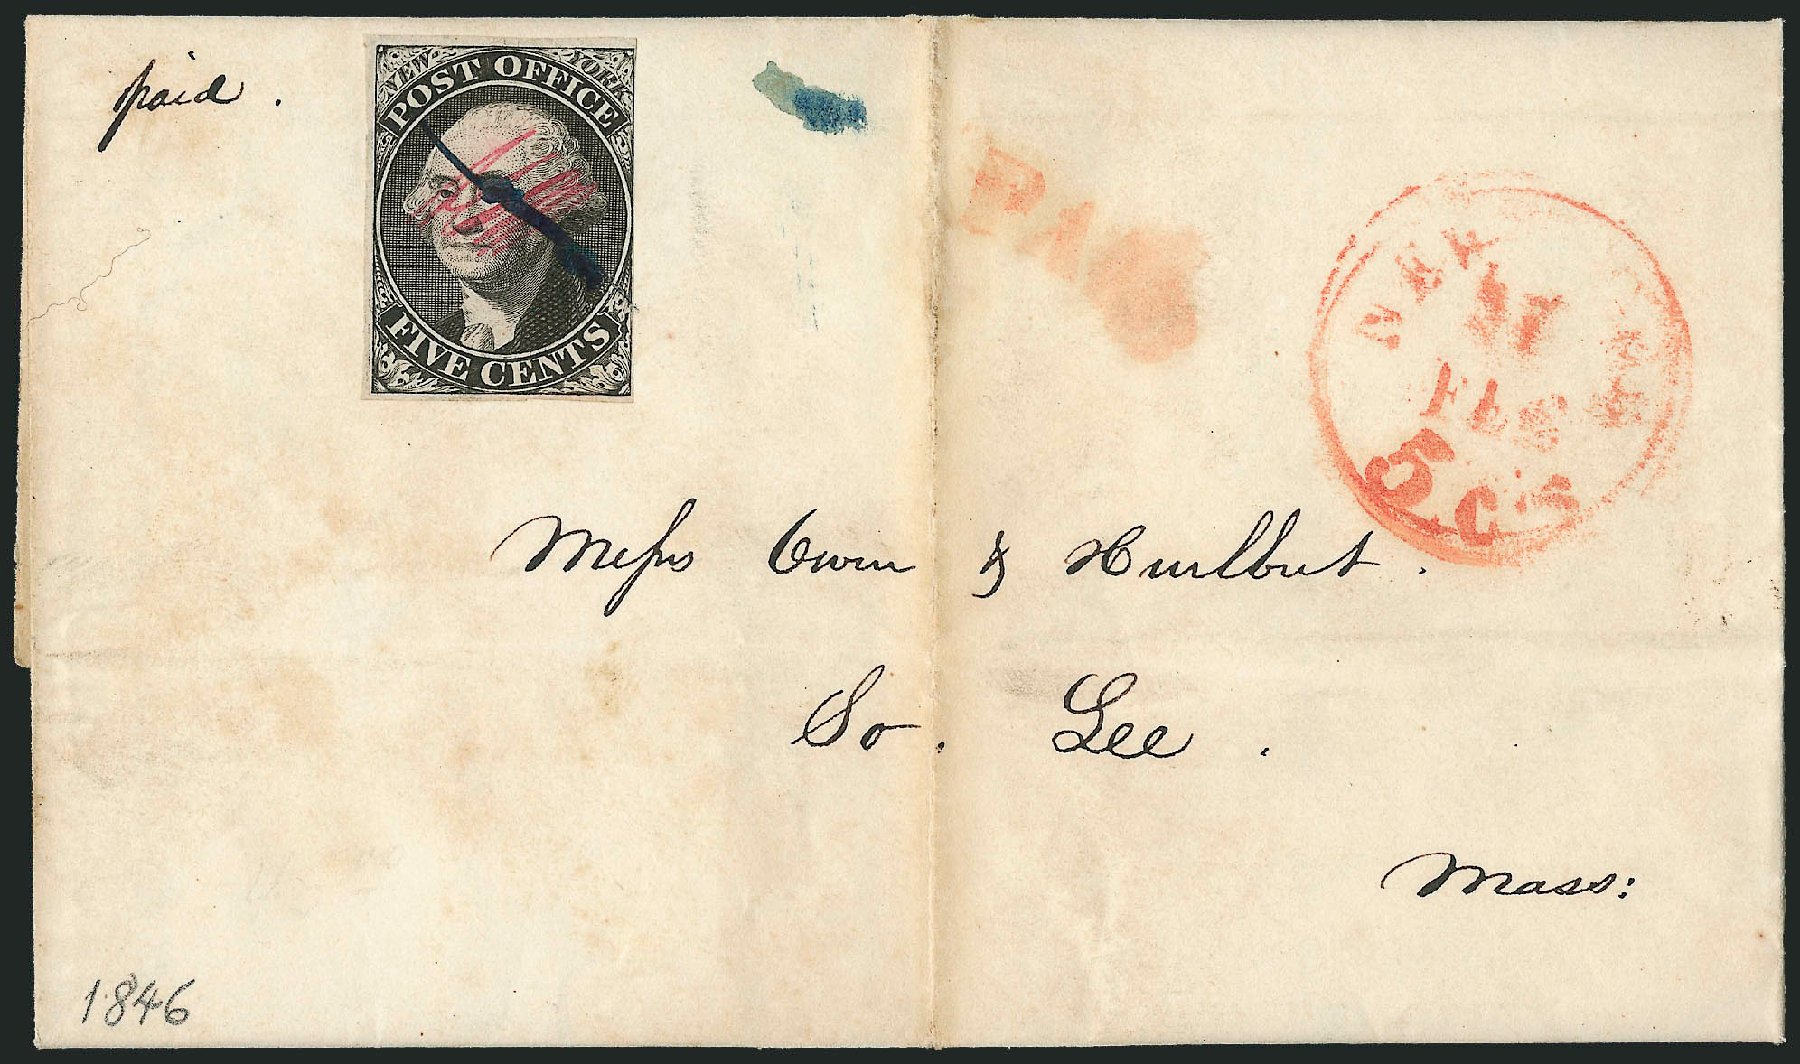 paid.
NEW YORK
POST OFFICE
FIVE CENTS
PAID
NEW
17
FEB
5 cts
Messrs Owen & Hurlbut.
So. Lee.
Mass:
1846